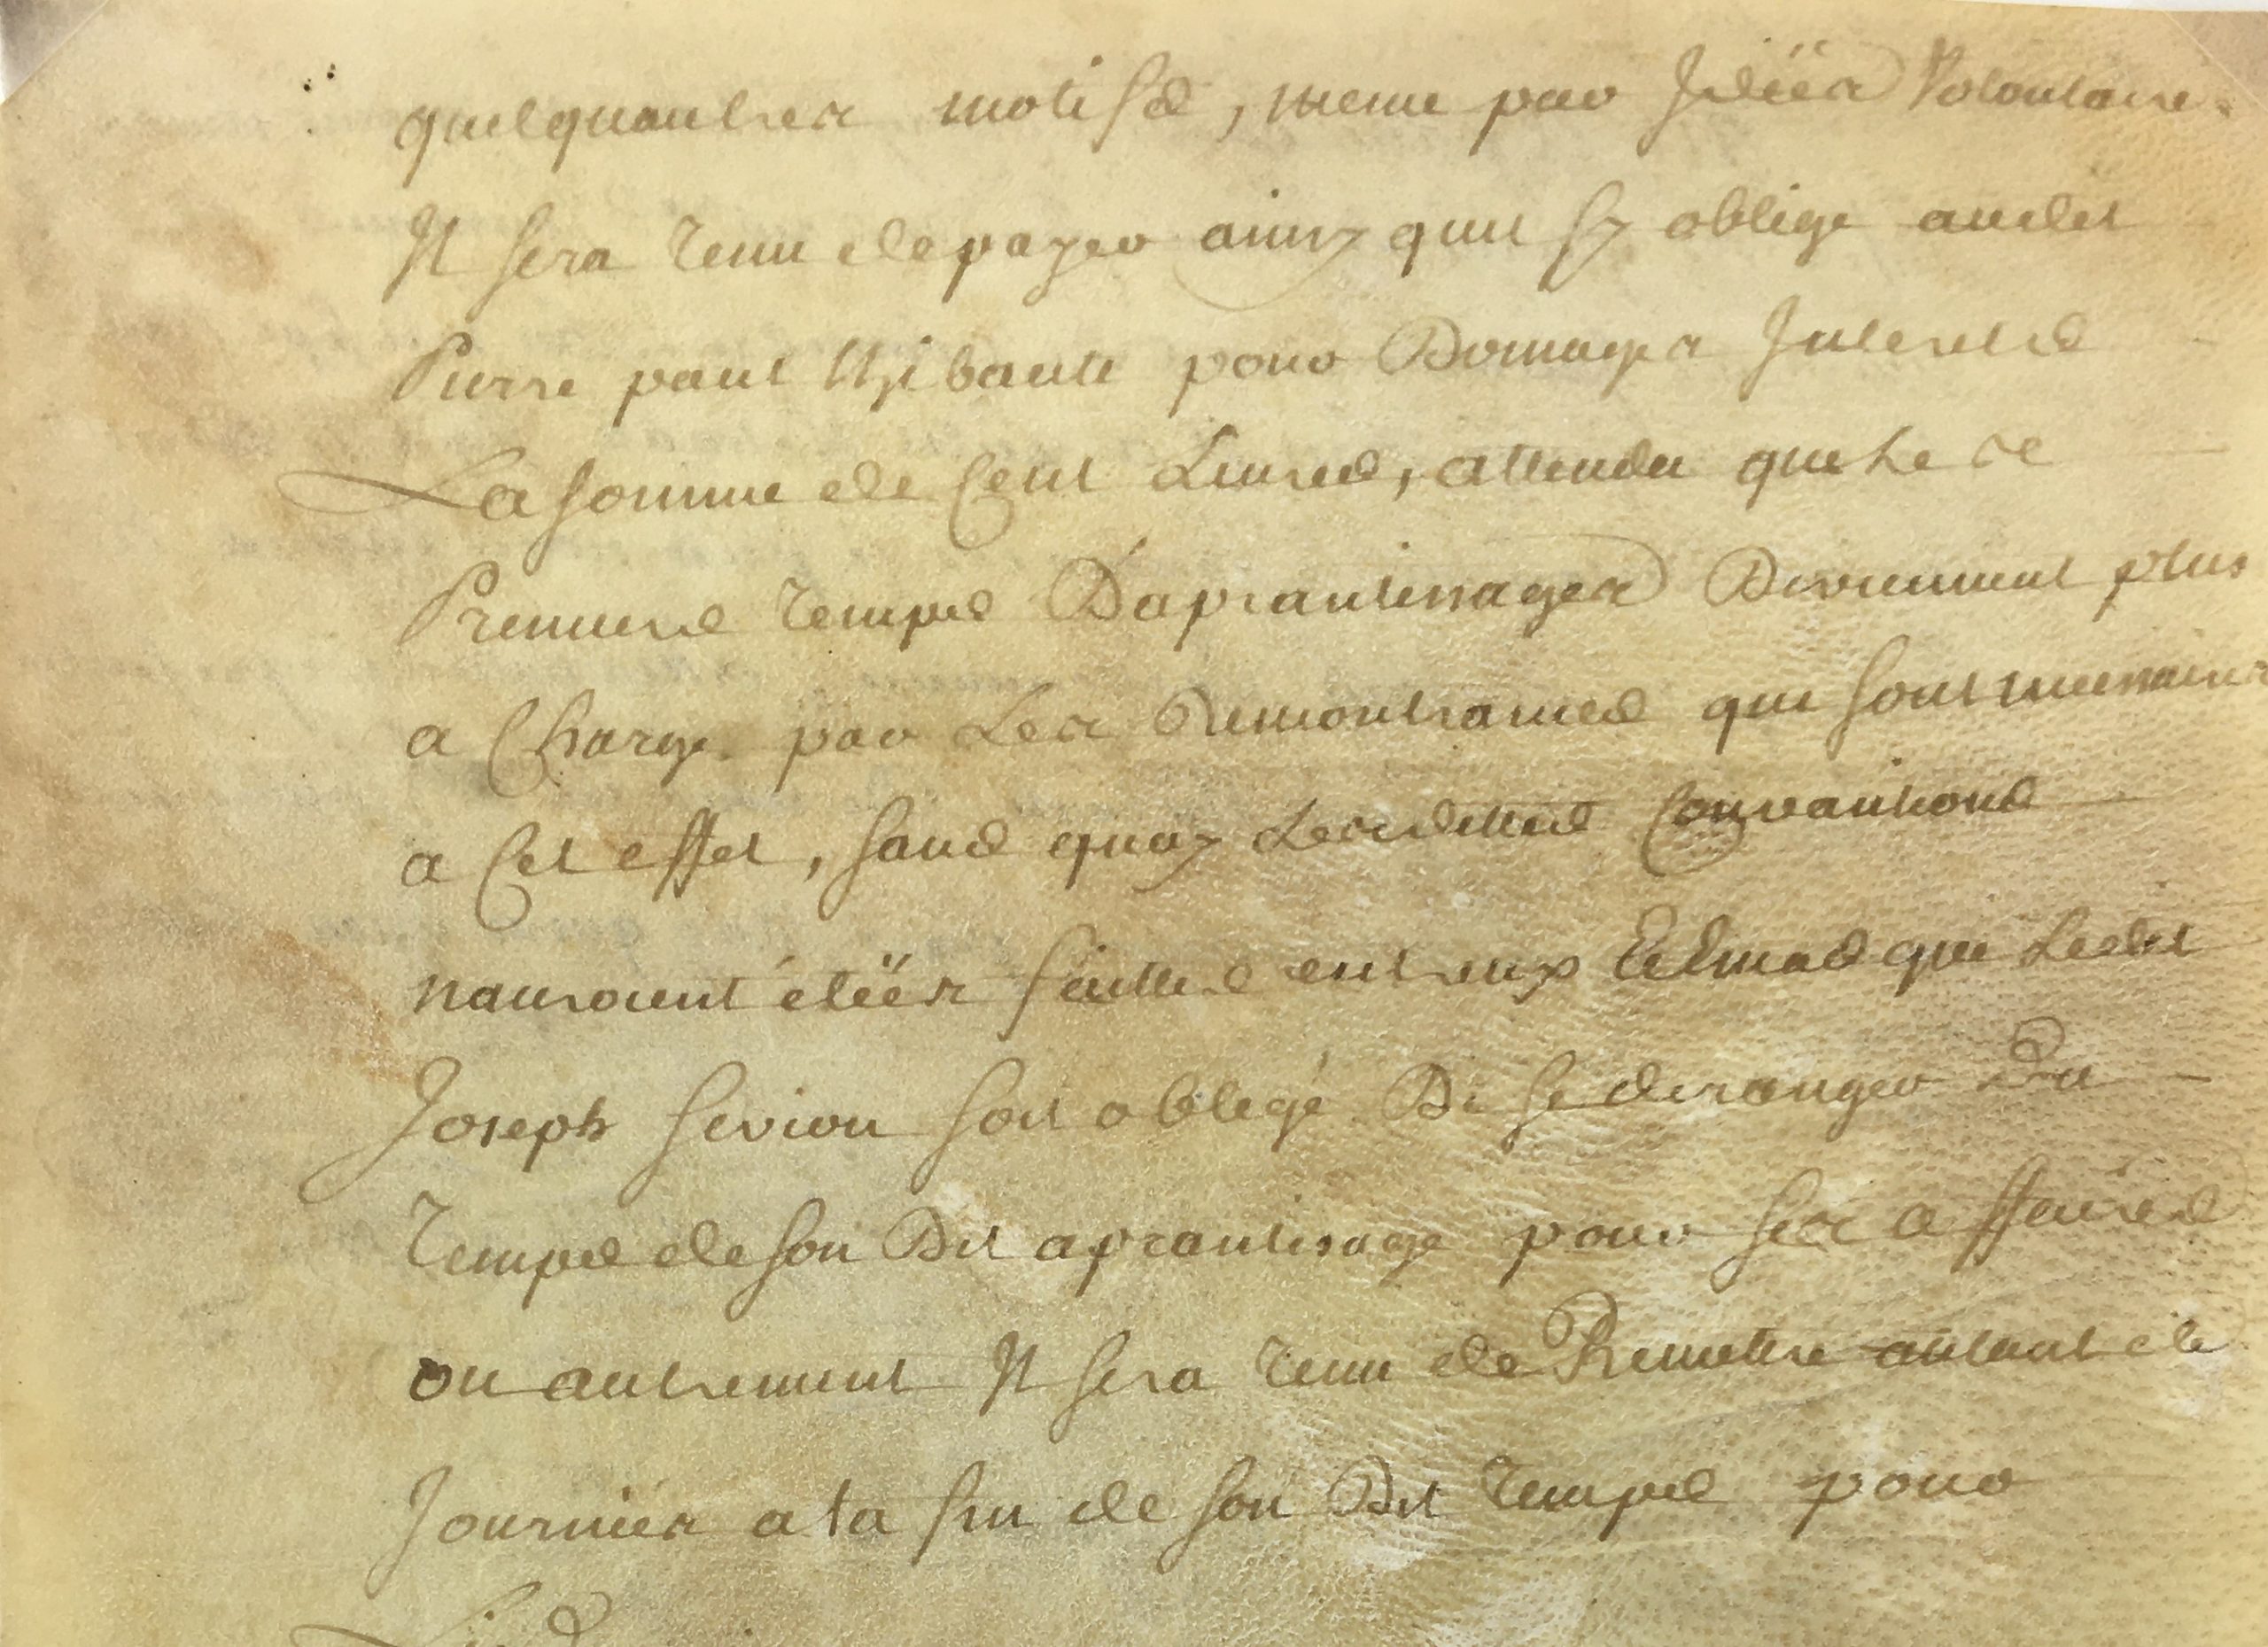 quelquautres motifs, meme par Idéës Volontaire.
Il sera tenu de payer ainsy quil sy oblige audit
Pierre paul thibault pour Domages Interets
La somme de Cent Livres, attendu que Les
Premiers temps D'aprantissages Deviennent plus
a Charge par Les Remontrances qui sont necessaires
a Cet effet, sans quoy Lesdittes Convantions
nauroient étéës faittes entreux Et En cas que Ledit
Joseph Sevion soit obligé De se deranger Du
temps de son Dit aprantisage pour ses affaires
ou autrement Il sera tenu de Remettre autant de
Journéës a la fin de son Dit temps pour